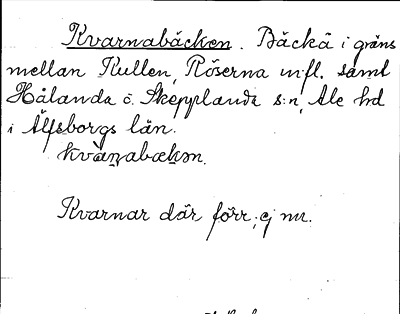 Kvarnabäcken. Bäckä i gräns
mellan Kullen, Röserna m.fl. samt
Hålanda o. Skepplanda s:n, Ale hd
i Älfsborgs län.
kvàṉabækən.
Kvarnar där förr, ej nu.